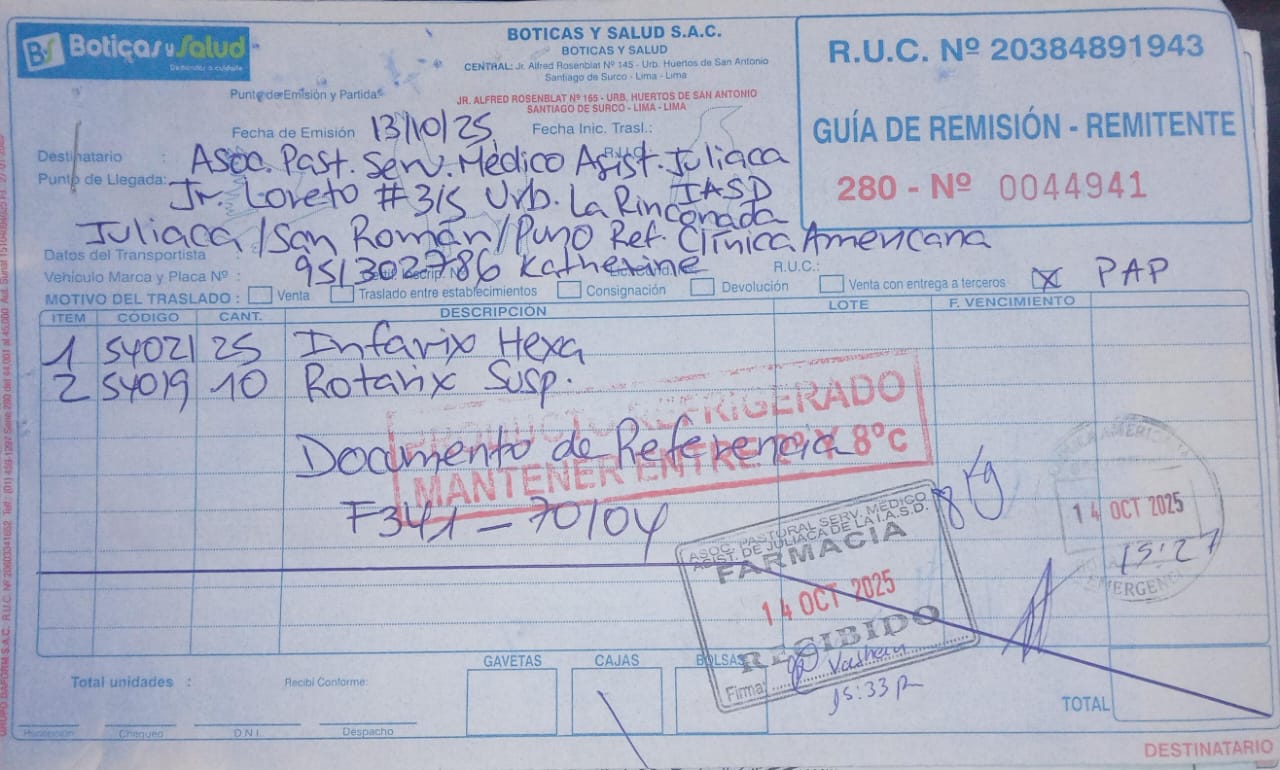 BS Boticas y Salud
BOTICAS Y SALUD S.A.C.
BOTICAS Y SALUD
CENTRAL: Jr. Alfred Rosenblat Nº 145 - Urb. Huertos de San Antonio
Santiago de Surco - Lima - Lima
Punto de Emisión y Partida:
JR. ALFRED ROSENBLAT Nº 165 - URB. HUERTOS DE SAN ANTONIO
SANTIAGO DE SURCO - LIMA - LIMA
R.U.C. Nº 20384891943
GUÍA DE REMISIÓN - REMITENTE
280 - Nº 0044941
Fecha de Emisión 13/10/25 Fecha Inic. Trasl.:
Destinatario : Asoc. Past. Serv. Médico Asist. Juliaca
Punto de Llegada: Jr. Loreto #315 Urb. La Rinconada IASD
Juliaca/San Román/Puno Ref. Clínica Americana
Datos del Transportista
Vehículo Marca y Placa Nº : 951302786 Katherine R.U.C.:
MOTIVO DEL TRASLADO : Venta Traslado entre establecimientos Consignación Devolución Venta con entrega a terceros X PAP
ITEM CÓDIGO CANT. DESCRIPCIÓN LOTE F. VENCIMIENTO
1 54021 25 Infarix Hexa
2 54019 10 Rotarix Susp.
PRODUCTO REFRIGERADO
MANTENER ENTRE 2º Y 8ºC
Documento de Referencia
F341-70104
8 Kg
14 OCT 2025
15:27
EMERGENCIA
ASOC. PASTORAL SERV. MEDICO
ASIST. DE JULIACA DE LA I.A.S.D.
FARMACIA
14 OCT 2025
RECIBIDO
Firma:
15:33 p
Total unidades : Recibí Conforme: GAVETAS CAJAS BOLSAS
TOTAL
Chequeo D.N.I. Despacho
DESTINATARIO